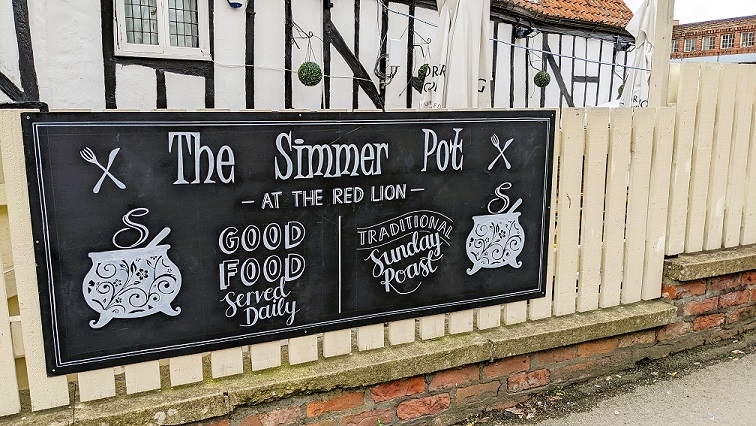 The Simmer Pot
- AT THE RED LION -
GOOD
FOOD
Served
Daily
TRADITIONAL
Sunday
Roast